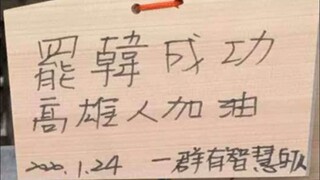 罷韓成功
高雄人加油
2020.1.24 一群有智慧的人